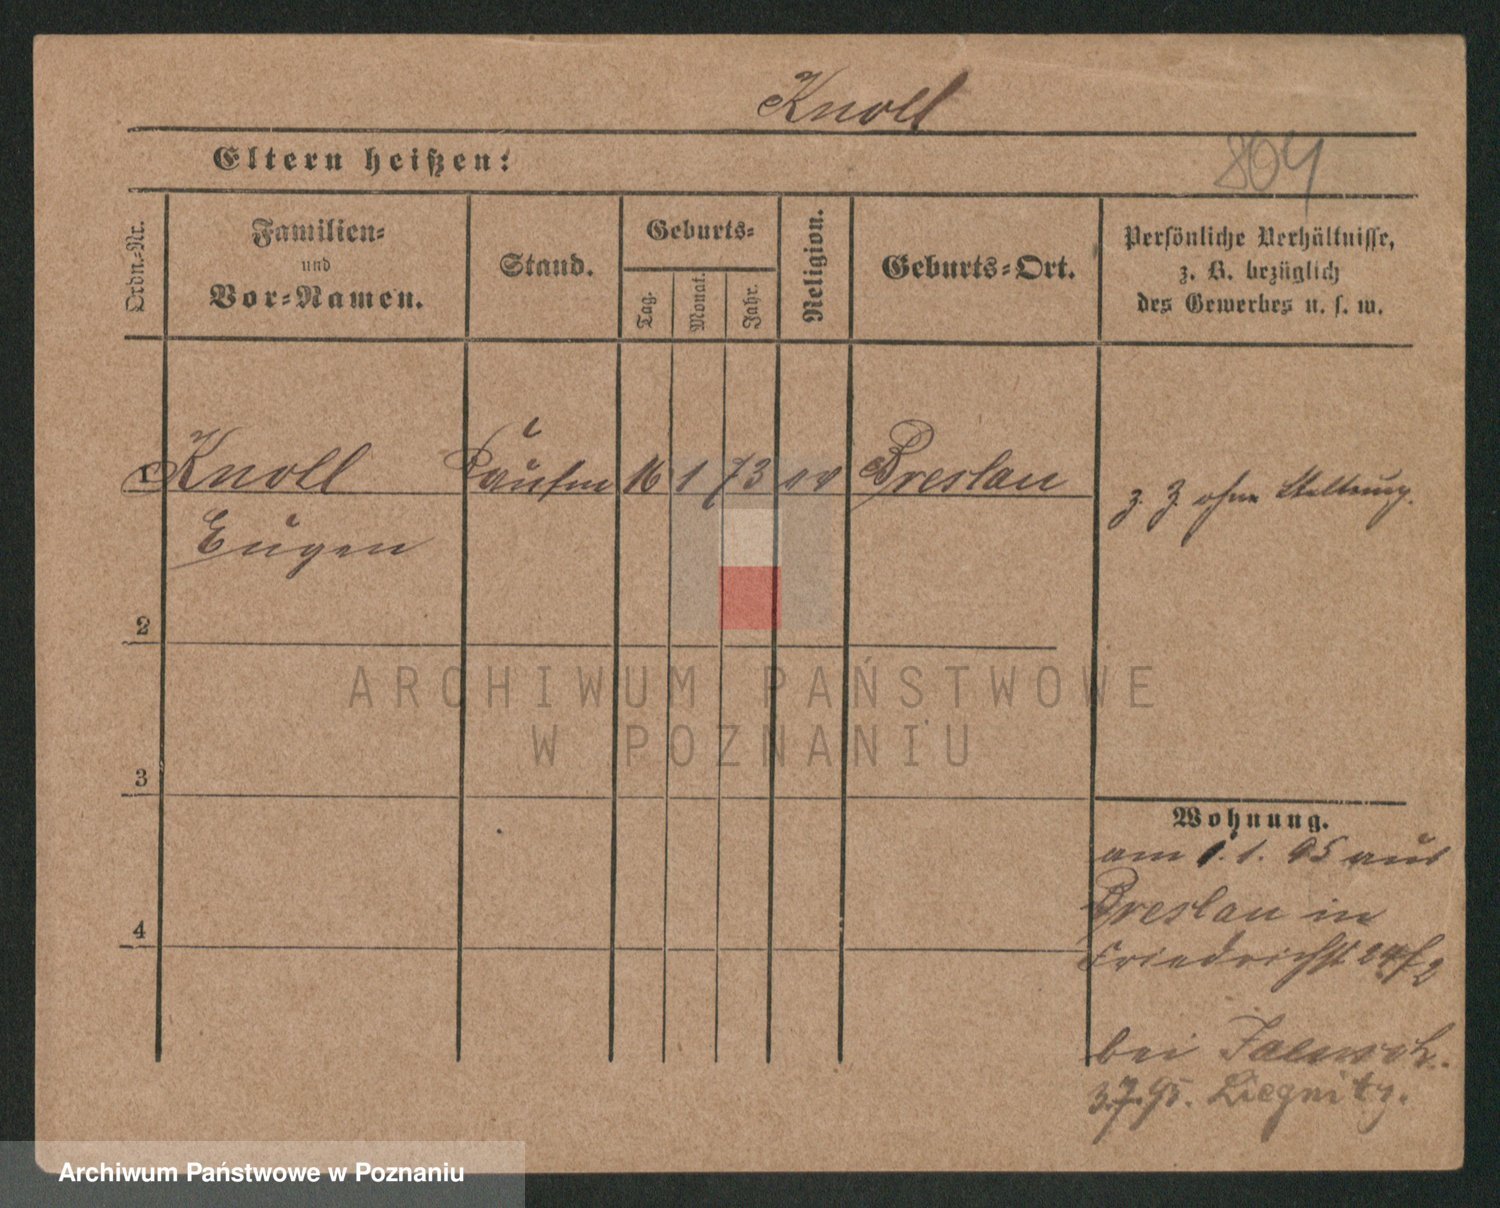 Knoll
Eltern heißen:
804
Ordn.-Nr.
Familien-
und
Vor-Namen.
Stand.
Geburts-
Tag.
Monat.
Jahr.
Religion.
Geburts-Ort.
Persönliche Verhältnisse,
z. B. bezüglich
des Gewerbes u. s. w.
1 Knoll Kaufm 16 1 73 ev Breslau
z. Z. ohne Stellung.
Eugen
2
ARCHIWUM PAŃSTWOWE
W POZNANIU
3
Wohnung.
am 1. 1. 95 aus
Breslau in
4
Friedrichst 24/2
bei
3.7.95. Liegnitz.
Archiwum Państwowe w Poznaniu